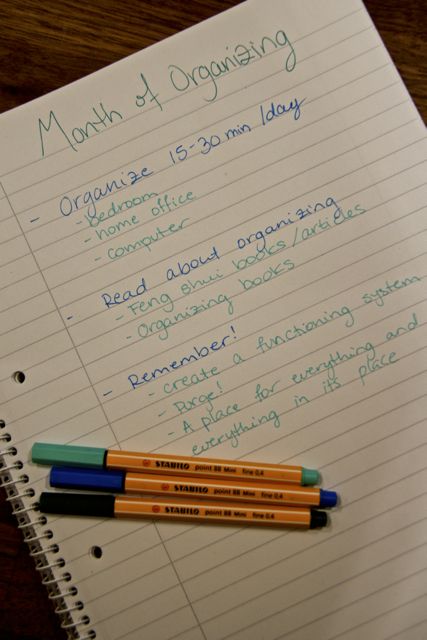 Month of Organizing
- Organize 15-30 min /day
- bedroom
- home office
- computer
- Read about organizing
- Feng shui books/articles
- Organizing books
- Remember!
- create a functioning system
- Purge!
- A place for everything and
everything in its place
STABILO point 88 Mini fine 0,4
STABILO point 88 Mini fine 0,4
STABILO point 88 Mini fine 0,4